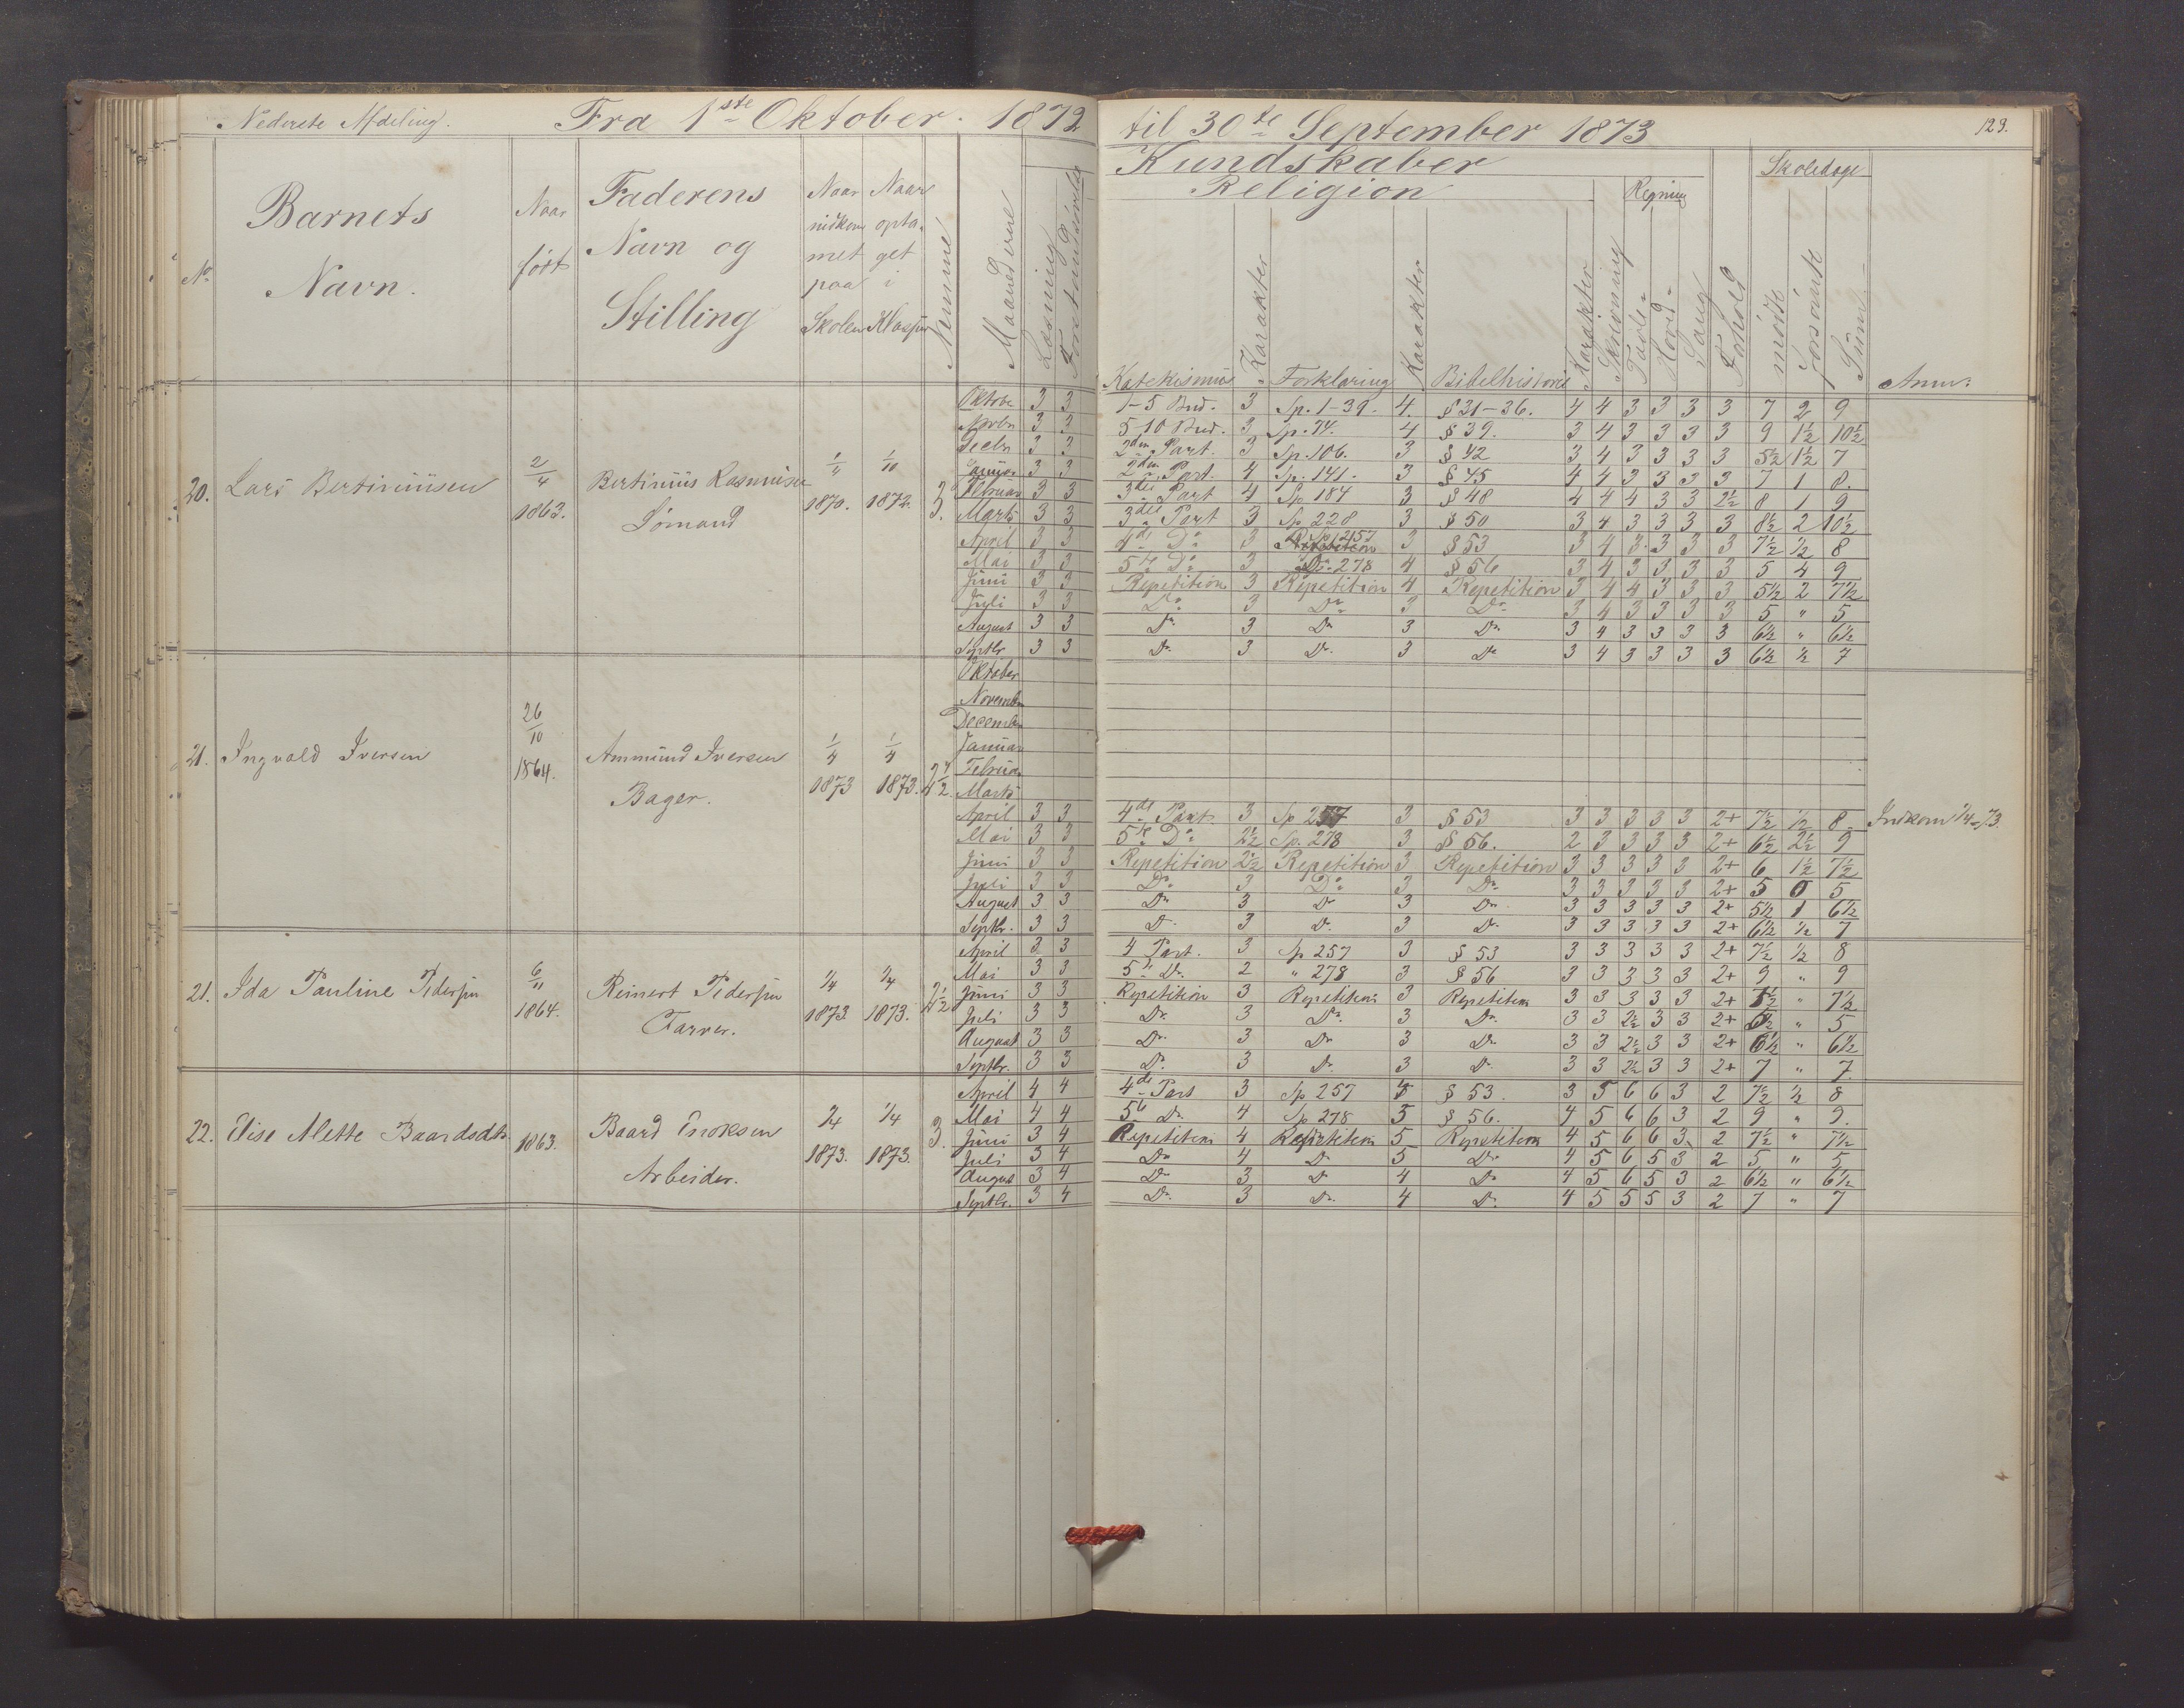 Nederste Afdeling. Fra 1ste Oktober. 1872 til 30te September 1873 129.
Kundskaber
Religion Regning Skoledage
No. Barnets Navn. Naar født Faderens Navn og Stilling Naar indkommet paa Skolen Naar optaget i Klassen Numme Maanederne Læsning Forstandsøvelse Katekismus Karakter Forklaring Karakter Bibelhistorie Karakter Skrivning Tavle- Hoved- Sang Forhold mødte forsømte Sum Anm:
20. Lars Bertiniusen 2/4 1863. Bertinius Rasmusen Sømand 1/4 1870. 1/10 1872. 3.
Oktobr 3 3 1-5 Bud. 3 Sp. 1-39. 4. § 31-36. 4 4 3 3 3 3 7 2 9
Novbr 3 3 5-10 Bud. 3 Sp. 74. 4 § 39. 3 4 3 3 3 3 9 1½ 10½
Decbr 3 3 2den Part. 3 Sp. 106. 3 § 42 3 4 3 3 3 3 5½ 1½ 7
Januar 3 3 2den Part. 4 Sp. 141. 3 § 45 4 4 3 3 3 3 7 1 8.
Februar 3 3 3die Part 4 Sp. 184 3 § 48 4 4 4 3 3 2½ 8 1 9
Marts 3 3 3die Part 3 Sp 228 3 § 50 3 4 3 3 3 3 8½ 2 10½
April 3 3 4de Do 3 Sp 257 3 § 53 3 4 3 3 3 3 7½ ½ 8
Mai 3 3 5te Do 3 Do 278 4 § 56 3 4 3 3 3 3 5 4 9
Juni 3 3 Repetition 3 Repetition 4 Repetition 3 4 4 3 3 3 5½ 2 7½
Juli 3 3 Do 3 Do 3 Do 3 4 3 3 3 3 5 " 5
August 3 3 Do 3 Do 3 Do 3 4 3 3 3 3 6½ " 6½
Septbr 3 3 Do 3 Do. 3 Do 3 4 3 3 3 3 6½ ½ 7
21. Ingvald Iversen 26/10 1864. Ammund Iversen Bager. 1/4 1873 1/4 1873. 2½
Oktober
November
December
Januar
Februar
Marts
April 3 3 4de Part. 3 Sp 257 3 § 53 3 3 3 3 3 2+ 7½ ½ 8 Indkom 1/4-73.
Mai 3 3 5te Do 2½ Sp. 278 3 § 56. 2 3 3 3 3 2+ 6½ 2½ 9
Juni 3 3 Repetition 2½ Repetition 3 Repetition 3 3 3 3 3 2+ 6 1½ 7½
Juli 3 3 Do 3 Do 3 Do 3 3 3 3 3 2+ 5 0 5
August 3 3 Do 3 Do 3 Do 3 3 3 3 3 2+ 5½ 1 6½
Septbr. 3 3 Do 3 Do. 3 Do. 3 3 3 3 3 2+ 6½ ½ 7
21. Ida Pauline Pedersen 6/11 1864. Reinert Pedersen Farver. 1/4 1873 1/4 1873. 2½
April 3 3 4 Part. 3 Sp 257 3 § 53 3 3 3 3 3 2+ 7½ ½ 8
Mai 3 3 5te Do. 2 " 278 3 § 56 3 3 3 3 3 2+ 9 " 9
Juni 3 3 Repetition 3 Repetition 3 Repetition 3 3 3 3 3 2+ 7½ " 7½
Juli 3 3 Do. 3 Do. 3 Do. 3 3 2½ 3 3 2+ " 5
August 3 3 Do. 3 Do 3 Do 3 3 2½ 3 3 2+ 6½ " 6½
Septbr. 3 3 Do. 3 Do. 3 Do. 3 3 2½ 3 3 2+ 7 " 7.
22. Elise Mette Baardsdtr. 1863. Baard Enoksen Arbeider. 1/4 1873. 1/4 1873. 3.
April 4 4 4de Part 3 Sp 257 § 53. 3 5 6 6 3 2 7½ ½ 8
Mai 4 4 5te Do. 4 Sp 278 5 § 56. 4 5 6 6 3 2 9 " 9.
Juni 3 4 Repetition 4 Repetition 5 Repetition 4 5 6 6 3 2 7½ " 7½
Juli 3 4 Do 4 Do 5 Do 4 5 6 5 3 2 5 " 5
August 3 4 Do 3 Do 4 Do 4 5 6 5 3 2 6½ " 6½
Septbr. 3 4 Do. 3 Do. 4 Do. 4 5 5 5 3 2 7 " 7